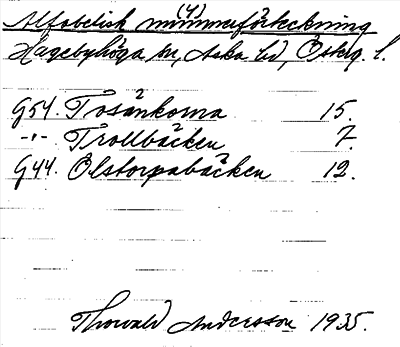 Alfabetisk namnförteckning
(4)
Hagebyhöga sn, Aska hd, Österg. l.
G54. Tosänkorna 15.
-"- Trollbäcken 7.
G44. Ölstorpabäcken 12.
Thorvald Andersson 1935.